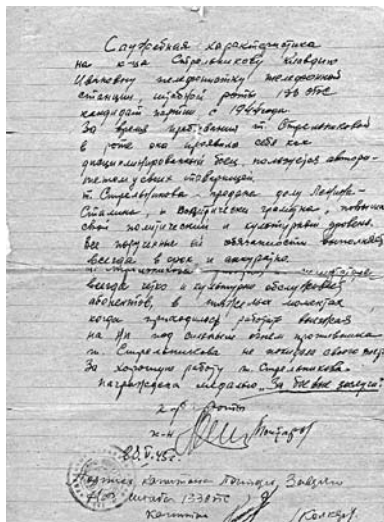 Служебная характеристика
на к-ца Стрельникову Клавдию
Ивановну телефонистку телефонной
станции, штабной роты 133 ОПС
кандидат партии с 1944 года.
За время пребывания т. Стрельниковой
в роте она проявила себя как
дисциплинированный боец, пользуется авторе-
тетом у своих товарищей.
т. Стрельникова предана делу Ленина-
Сталина, политически грамотна,
свой политический и культурный уровень.
Все порученные ей обязанности выполняет
всегда в срок и аккуратно.
т. Стрельникова
всегда четко и культурно обслуживает
абонентов, в тяжелых моментах
когда приходилось работать
на под сильным огнем противника
т. Стрельникова не покидала своего
За хорошую работу т. Стрельникова
награждена медалью "За боевые заслуги".
к-р роты
к-н
45г.
Подпись капитана заверяю
Нач. штаба 133 ОПС
Капитан